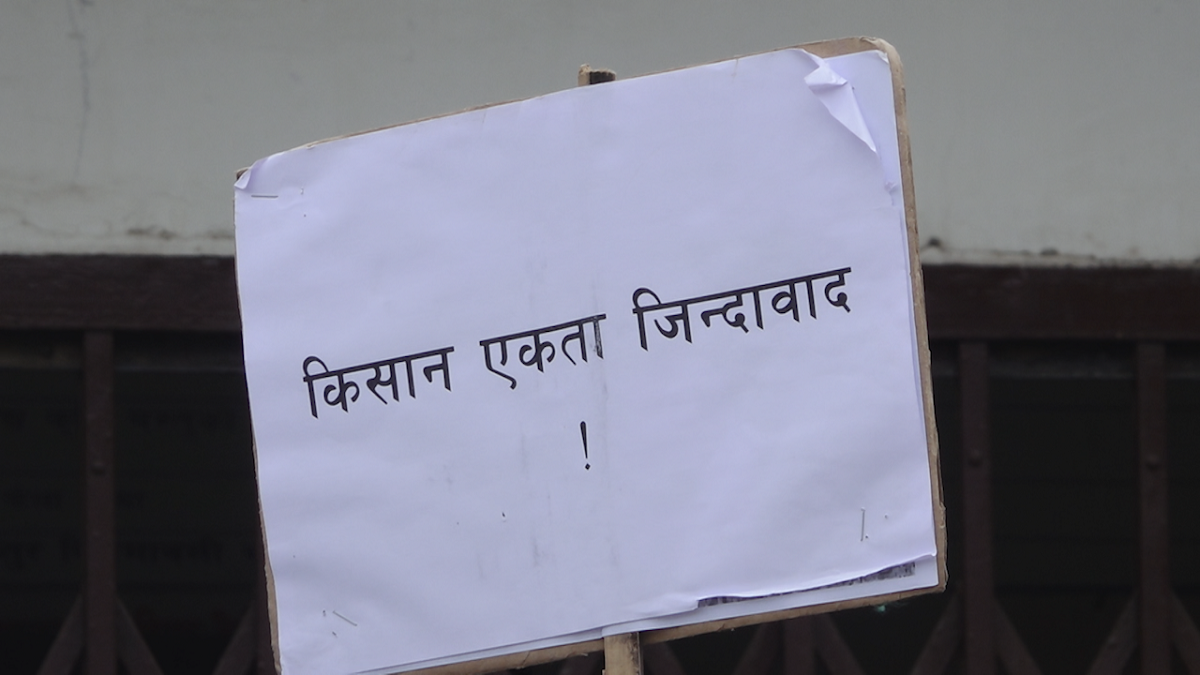 किसान एकता जिन्दावाद
!